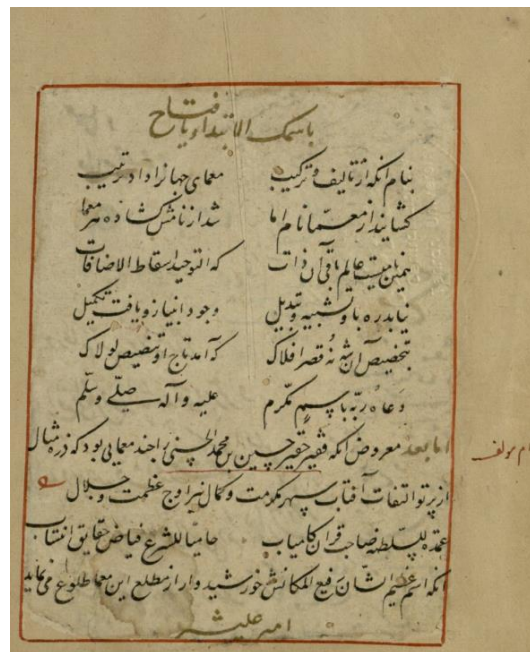 باسمک الابتداء یا فتاح
بنام آنکه از تالیف و ترکیب معمای جهانرا داد ترتیب
کشایند از معما نام اما شد از نامش کشاده هر معما
نیست عالم باقی آن ذات که التوحید اسقاط الاضافات
نیابد ره باو تشبیه و تبدیل وجود انبیا زو یافت تکمیل
بتخصیص آن شه نه قصر افلاک که آمد تاج او تخصیص لولاک
دعاه ربه باسم مکرم علیه و آله صلی و سلم
اما بعد معروض آنکه فقیر حقیر حسین بن محمد الحسینی را چند معمایی بود که ذره مثال
از پرتو التفات آفتاب سپهر مکرمت و کمال نیر اوج عظمت و جلال
عمدة للسلطنه صاحب قران کامیاب حامیا للشرع فیاض حقایق انتساب
آنکه اسم عظیم الشان رفیع المکانش خورشیدوار از مطلع این معما طلوع می نماید
امیر علیشیر
نام مولف